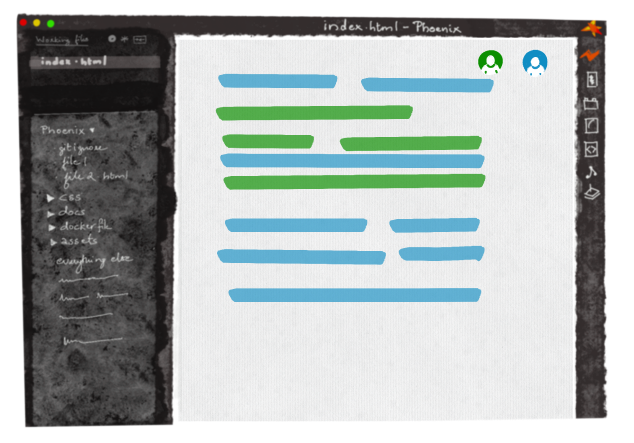 index.html - Phoenix
Working file
index.html
Phoenix
gitignore
file 1
file 2.html
css
docs
dockerfile
assets
everything else